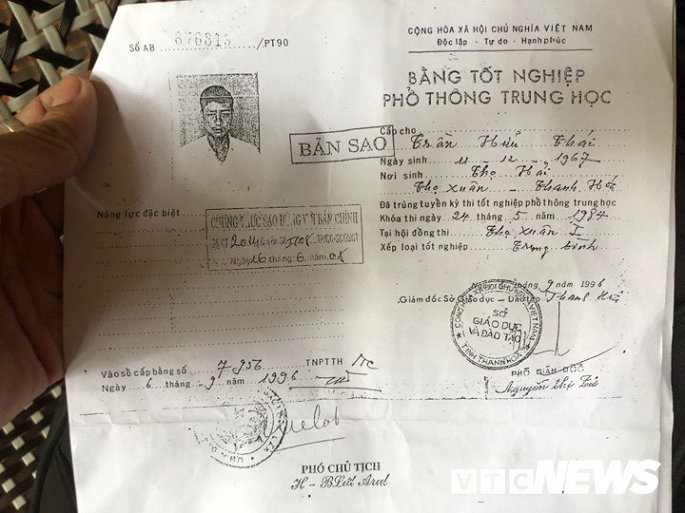 CỘNG HÒA XÃ HỘI CHỦ NGHĨA VIỆT NAM
Độc lập - Tự do - Hạnh phúc
Số AB 676815 /PT90
BẰNG TỐT NGHIỆP
PHỔ THÔNG TRUNG HỌC
BẢN SAO
Cấp cho Trần Hữu Thái
Ngày sinh 11 - 12 - 1967
Nơi sinh Thọ Hải
Thọ Xuân - Thanh Hóa
Đã trúng tuyển kỳ thi tốt nghiệp phổ thông trung học
Khóa thi ngày 24 tháng 5 năm 1984
Tại hội đồng thi Thọ Xuân I
Xếp loại tốt nghiệp Trung bình
Năng lực đặc biệt
CHỨNG THỰC SAO ĐÚNG VỚI BẢN CHÍNH
Ngày 16 tháng 6 năm 08
9 năm 1996
Giám đốc Sở Giáo dục - Đào tạo Thanh Hóa
CỘNG HÒA XÃ HỘI CHỦ NGHĨA VIỆT NAM
SỞ
GIÁO DỤC
VÀ ĐÀO TẠO
TỈNH THANH HÓA
PHÓ GIÁM ĐỐC
Nguyễn Thị
Vào sổ cấp bằng số 7956 TNPTTH
Ngày 6 tháng 9 năm 1996
PHÓ CHỦ TỊCH
H - BLIK Arul
VTC NEWS